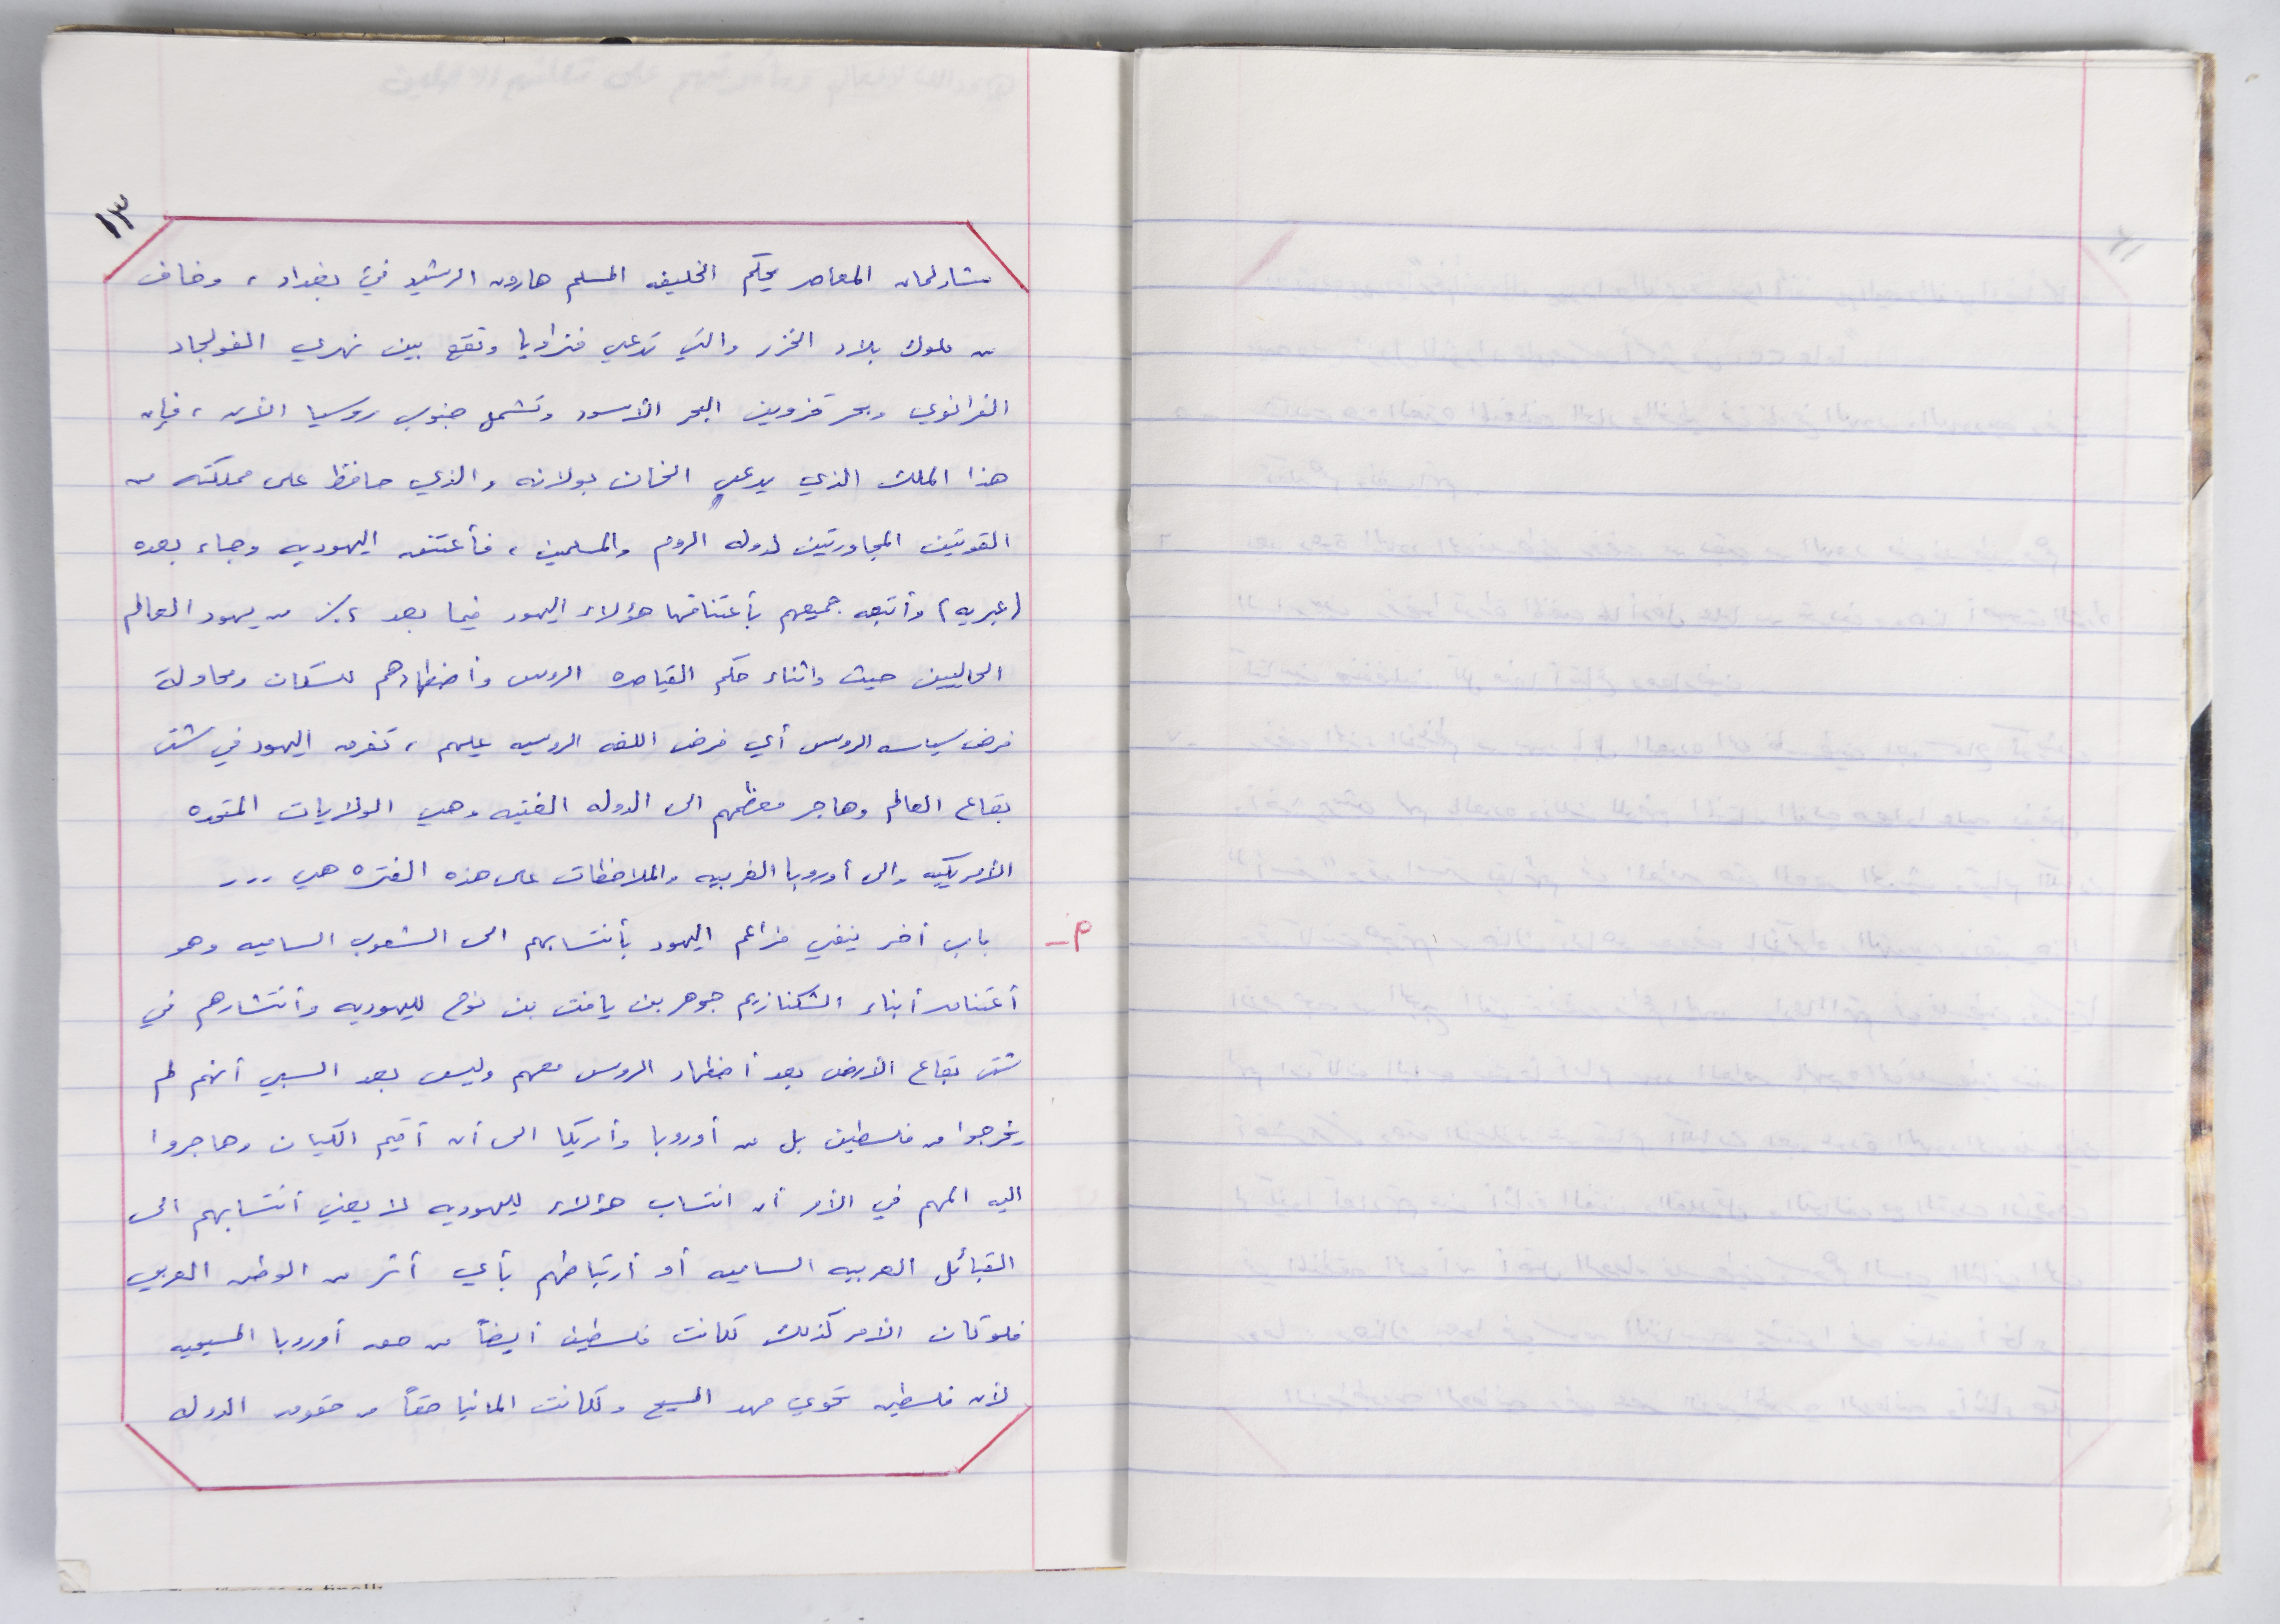 ١٣
شارلمان المعاصر يحكم الخليفه المسلم هارون الرشيد في بغداد ، وخاف
من ملوك بلاد الخزر والتي تدعى خزاريا وتقع بين نهري الفولجا د
وبحر قزوين البحر الأسود وتشمل جنوب روسيا الآن ، فإن
هذا الملك الذي يدعى الخان بولانه والذي حافظ على مملكته من
القوتين المجاورتين لدوله الروم والمسلمين ، فأعتنق اليهوديه وجاء بعده
(عبريه) وأتبعه جميعهم بأعتناقها هؤلاء اليهود فيما بعد ٪ من يهود العالم
الحاليين حيث واثناء حكم القياصره الروس وأضطهادهم للسكان ومحاولة
فرض سياسه الروس أي فرض اللغه الروسيه عليهم ، تفرق اليهود في شتى
بقاع العالم وهاجر معظمهم الى الدوله الفتيه وهي الولايات المتحده
الأمريكيه والى أوروبا الغربيه والملاحظات على هذه الفتره هي ...
٩- باب أخر ينفي مزاعم اليهود بأنتسابهم الى الشعوب الساميه وهو
أعتناق أبناء اشكنازيم جوهر بن يافت بن نوح لليهوديه وأنتشارهم في
شتى بقاع الأرض بعد أضطهاد الروس معهم وليس بعد السبي أنهم لم
يخرجوا من فلسطين بل من أوروبا وأمريكا الى أن أقيم الكيان وهاجروا
اليه المهم في الأمر أن انتساب هؤلاء لليهوديه لا يعني أنتسابهم الى
القبائل العربيه الساميه أو أرتباطهم بأي أثر من الوطن العربي
فلو كان الأمر كذلك لكانت فلسطين أيضاً من حق أوروبا المسيحيه
لأن فلسطين تحوي مهد المسيح ولكانت المانيا حقاً من حقوق الدوله